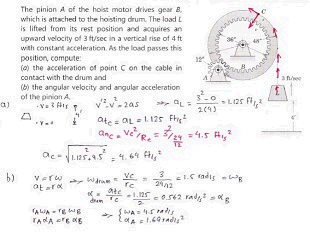 The pinion A of the hoist motor drives gear B,
which is attached to the hoisting drum. The load L
is lifted from its rest position and acquires an
upward velocity of 3 ft/sec in a vertical rise of 4 ft
with constant acceleration. As the load passes this
position, compute:
(a) the acceleration of point C on the cable in
contact with the drum and
(b) the angular velocity and angular acceleration
of the pinion A.
C
36"
48"
12"
A
B
3 ft/sec
4'
L
a)
v = 3 ft/s
4'
v = 0
v² - v² = 2as
a_L = 3² - 0 / 2(4) = 1.125 ft/s²
a_tc = a_L = 1.125 ft/s²
a_nc = v_c²/R_c = 3² / 24/12 = 4.5 ft/s²
a_c = √1.125² + 4.5² = 4.64 ft/s²
b) v = rω → ω_drum = v_c / r_c = 3 / 24/12 = 1.5 rad/s = ω_B
a_t = rα
α_drum = a_tc / r_c = 1.125 / 2 = 0.562 rad/s² = α_B
r_A ω_A = r_B ω_B
r_A α_A = r_B α_B
ω_A = 4.5 rad/s
α_A = 1.69 rad/s²